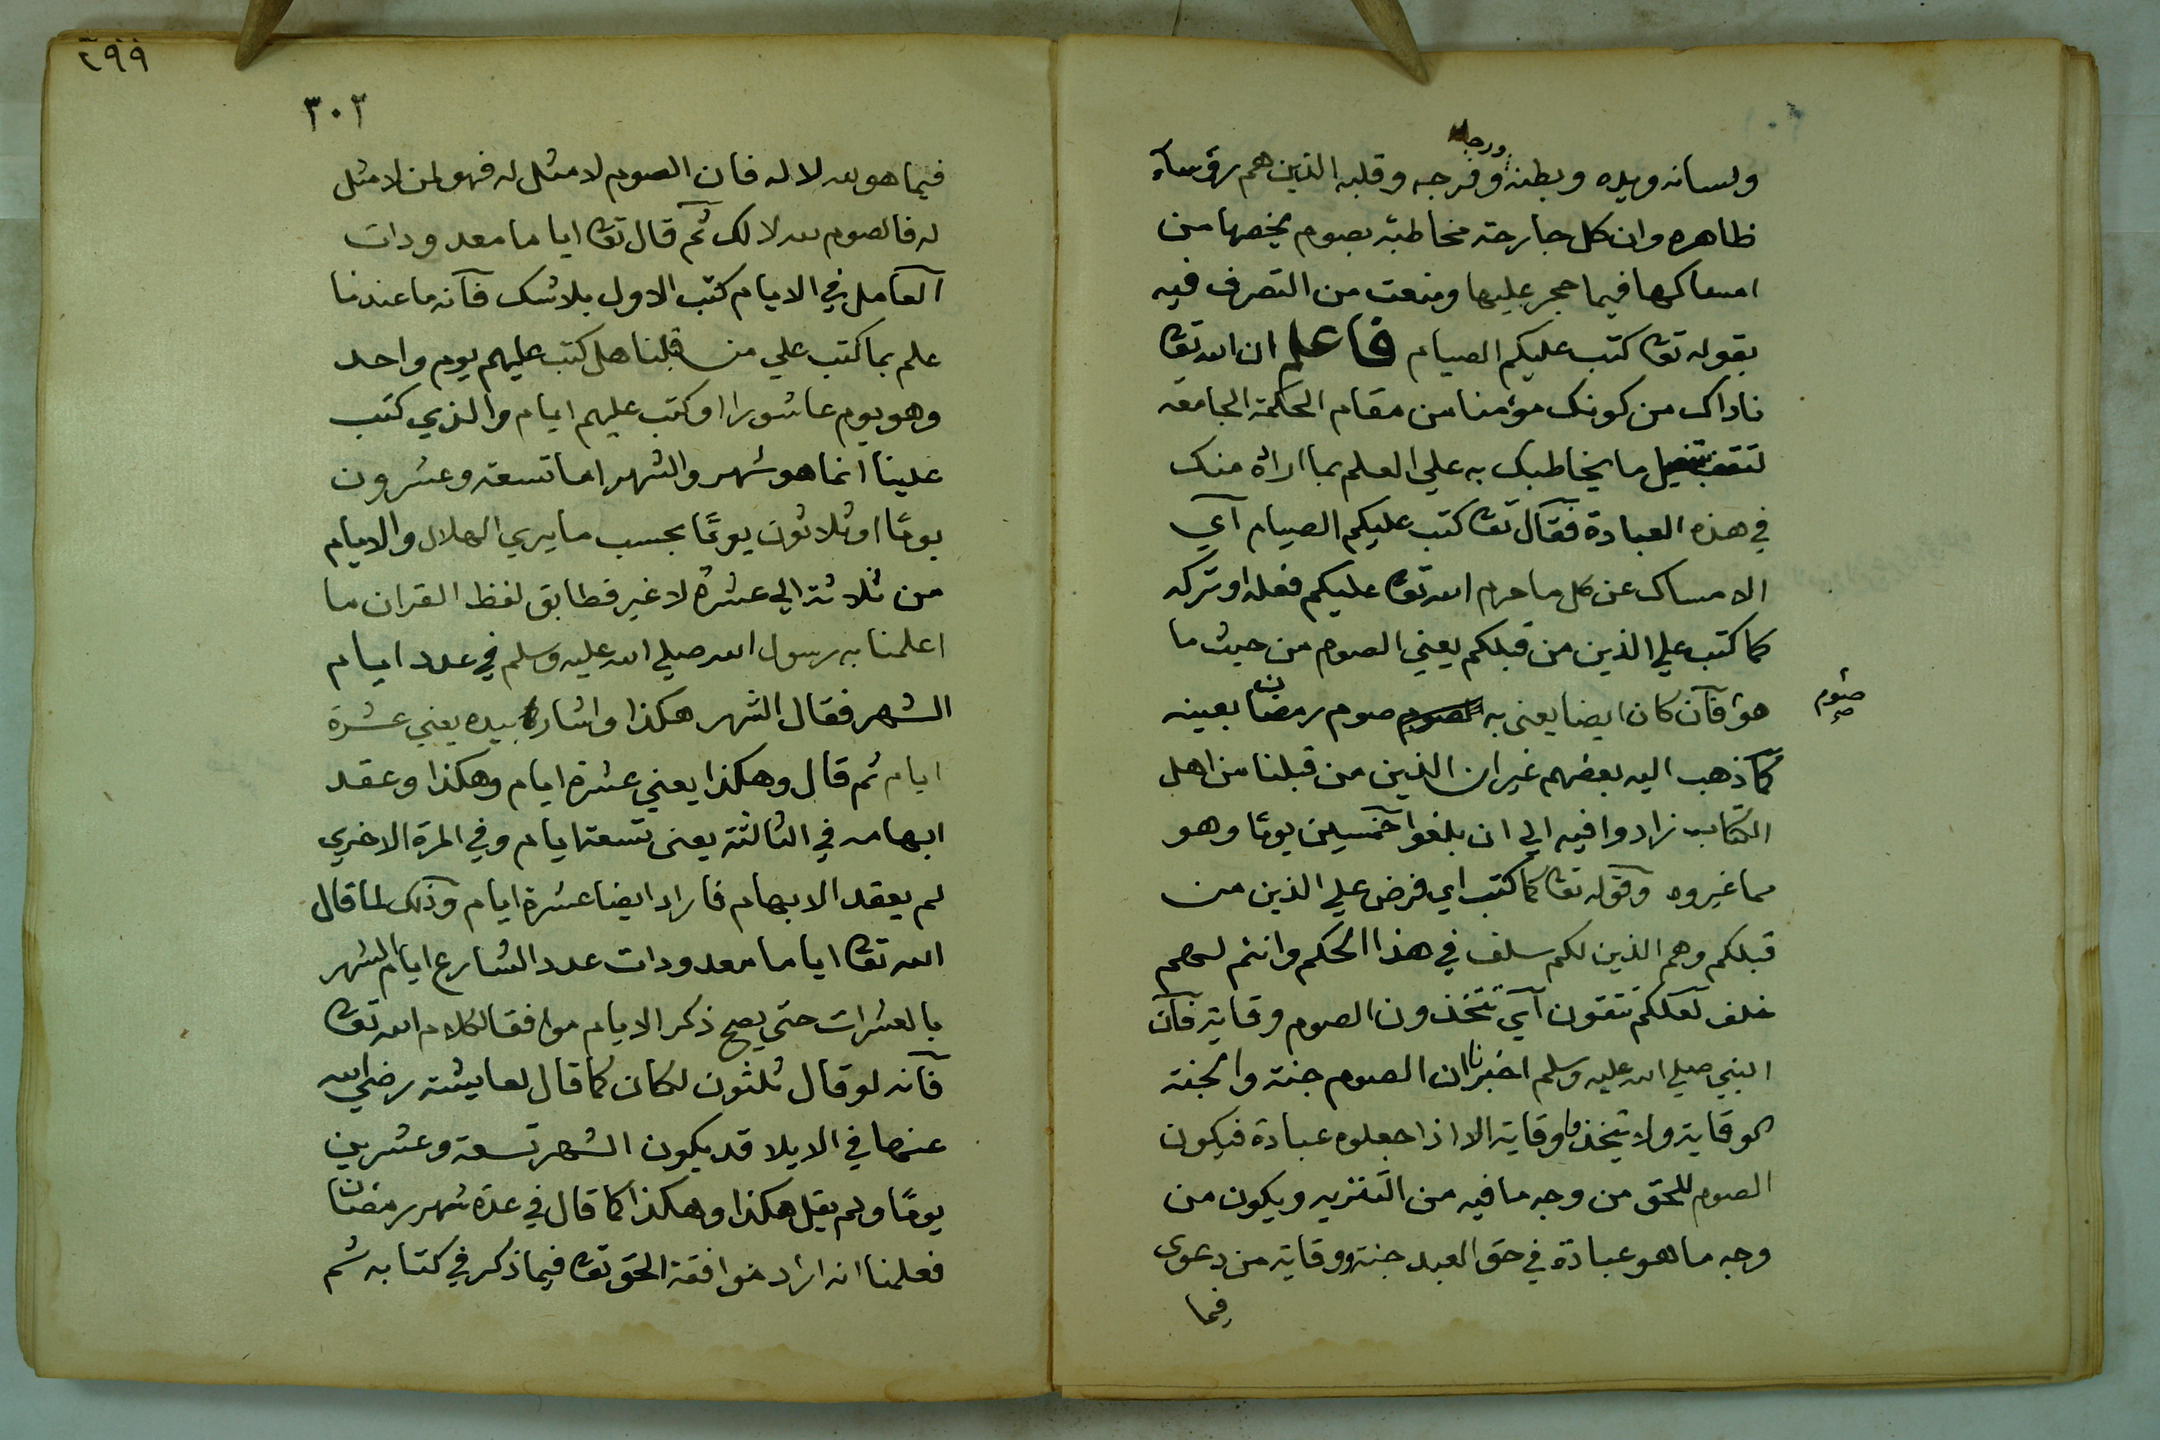 ولسانه ويده وبطنه وفرجه وقلبه الذين هم رؤساء
ورجله
ظاهره وان كل جارحة مخاطبة بصوم يخصها من
امساكها فيما حجر عليها ومنعت من التصرف فيه
بقوله تعا كتب عليكم الصيام فاعلم ان الله تعا
ناداك من كونك مؤمنا من مقام الحكمة الجامعة
لتقف بتفصيل ما يخاطبك به علي العلم بما اراده منك
في هذه العبادة فقال تعا كتب عليكم الصيام آي
الامساك عن كل ما حرم الله تعا عليكم فعله او تركه
كما كتب علي الذين من قبلكم يعني الصوم من حيث ما
هو فآن كان ايضا يعنى به صوم رمضان بعينه
صوم
كما ذهب اليه بعضهم غير ان الذين من قبلنا من اهل
الكتاب زادوا فيه الي ان بلغوا خمسين يومًا وهو
مما غيروه وقوله تعا كما كتب اي فرض علي الذين من
قبلكم وهم الذين لكم سلف في هذا الحكم وانتم لهم
خلف لعلكم تتقون آي تتخذون الصوم وقاية فآن
النبي صلي الله عليه وسلم اخبرنا ان الصوم جنة والجنة
الوقاية ولا يتخذوا وقاية الا اذا جعلوه عبادة فيكون
الصوم للحق من وجه ما فيه من التنزيه ويكون من
وجه ما هو عبادة في حق العبد جنة ووقاية من دعوى
فيما
٢٩٩
٣٠٢
فيما هو لله لا له فان الصوم لا مثل له فهو لمن لا مثل
له فالصوم لله لا لك ثم قال تعا اياما معدودات
آلعامل في الايام كتب الاول بلاشك فآنه ما عندنا
علم بما كتب علي من قبلنا هل كتب عليهم يوم واحد
وهو يوم عاشورا او كتب عليهم ايام والذي كتب
علينا انما هو شهر والشهر اما تسعة وعشرون
يومًا او ثلاثون يومًا بحسب ما يري الهلال والايام
من ثلاثة الي عشرة لا غير فطابق لفظ القران ما
اعلمنا به رسول الله صلي الله عليه وسلم في عدد ايام
الشهر فقال الشهر هكذا واشار بيده يعني عشرة
ايام ثم قال وهكذا يعني عشرة ايام وهكذا وعقد
ابهامه في الثالثة يعنى تسعة ايام وفي المرة الاخري
لم يعقد الابهام فاراد ايضا عشرة ايام وذلك لما قال
الله تعا اياما معدودات عدد الشارع ايام الشهر
بالعشرات حتي يصح ذكر الايام موافقا لكلام الله تعا
فآنه لو قال ثلثون لكان كما قال لعايشة رضي الله
عنها في الايلا قد يكون الشهر تسعة وعشرين
يومًا ولم يقل هكذا وهكذا كما قال في عدة شهر رمضان
فعلمنا انه اراد موافقة الحق تعا فيما ذكر في كتابه ثم